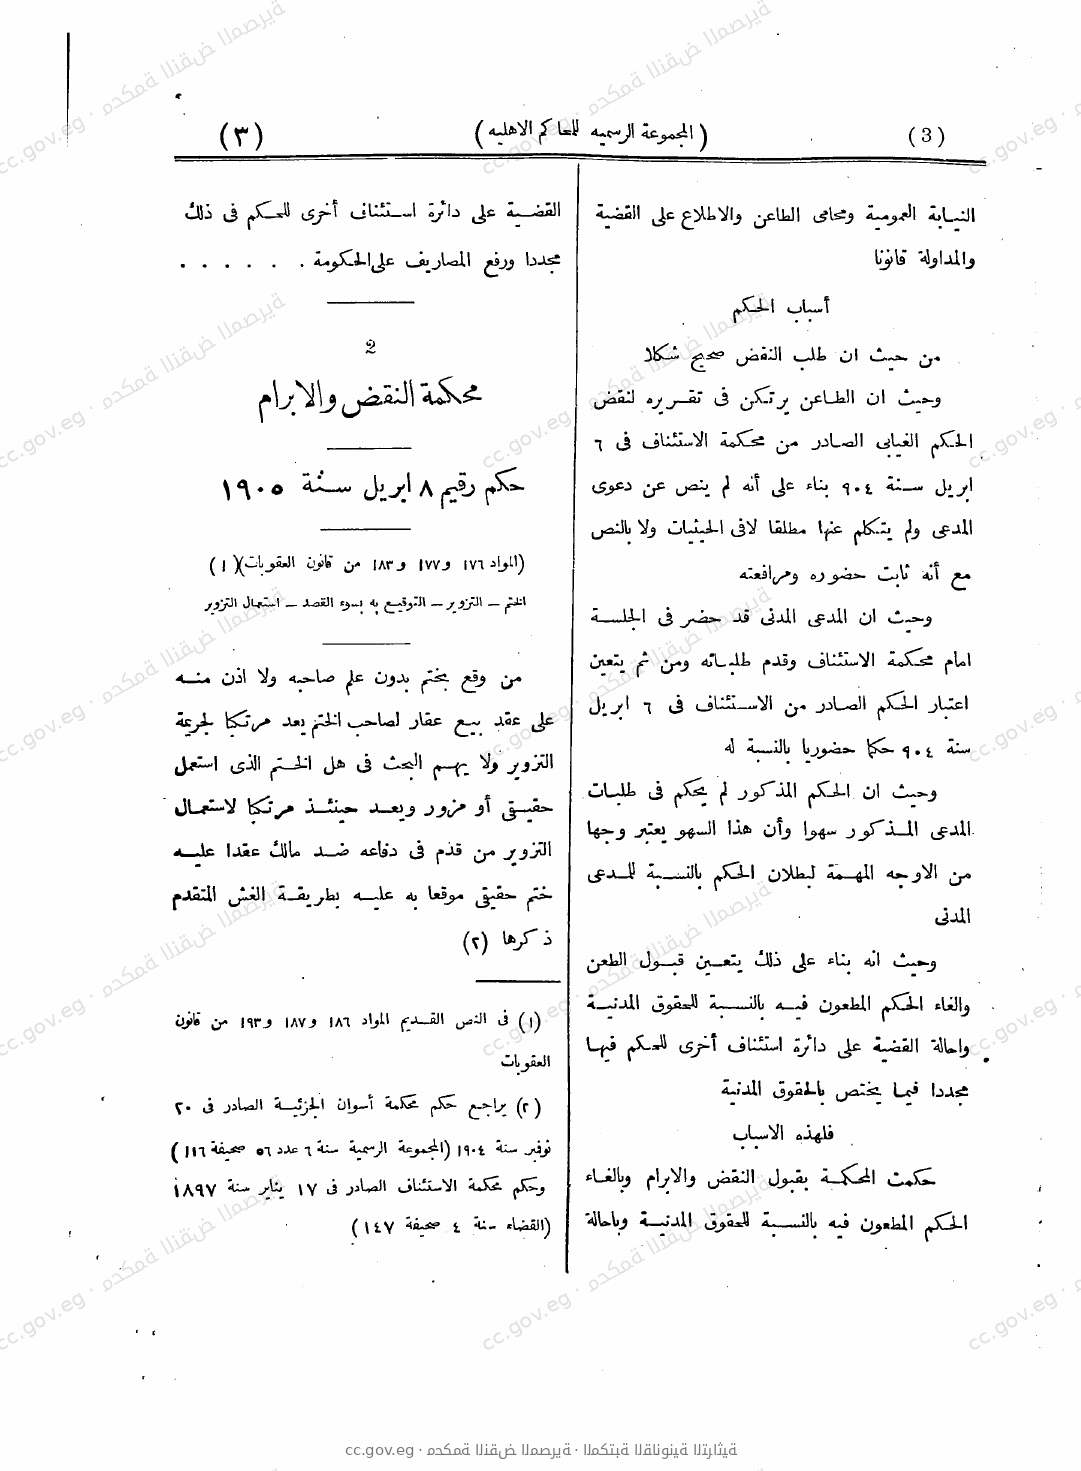 (3)
(المجموعة الرسميه للمحاكم الاهليه)
(٣)
النيابة العمومية ومحامى الطاعن والاطلاع على القضية
والمداولة قانونا
أسباب الحكم
من حيث ان طلب النقض صحيح شكلا
وحيث ان الطاعن يرتكن فى تقريره لنقض
الحكم الغيابى الصادر من محكمة الاستئناف فى ٦
ابريل سنة ٩٠٤ بناء على أنه لم ينص عن دعوى
المدعى ولم يتكلم عنها مطلقا لافى الحيثيات ولا بالنص
مع أنه ثابت حضوره ومرافعته
وحيث ان المدعى المدنى قد حضر فى الجلسة
امام محكمة الاستئناف وقدم طلباته ومن ثم يتعين
اعتبار الحكم الصادر من الاستئناف فى ٦ ابريل
سنة ٩٠٤ حكما حضوريا بالنسبة له
وحيث ان الحكم المذكور لم يحكم فى طلبات
المدعى المذكور سهوا وأن هذا السهو يعتبر وجها
من الاوجه المهمة لبطلان الحكم بالنسبة للمدعى
المدنى
وحيث انه بناء على ذلك يتعين قبول الطعن
والغاء الحكم المطعون فيه بالنسبة للحقوق المدنية
واحالة القضية على دائرة استئناف أخرى للحكم فيها
مجددا فيما يختص بالحقوق المدنية
فلهذه الاسباب
حكمت المحكمة بقبول النقض والابرام وبالغاء
الحكم المطعون فيه بالنسبة للحقوق المدنية وباحالة
القضية على دائرة استئناف أخرى للحكم فى ذلك
مجددا ورفع المصاريف على الحكومة . . . . . .
2
محكمة النقض والابرام
حكم رقيم ٨ ابريل سنة ١٩٠٥
(المواد ١٧٦ و١٧٧ و١٨٣ من قانون العقوبات)(١)
الختم – التزوير – التوقيع به بسوء القصد – استعمال التزوير
من وقع بختم بدون علم صاحبه ولا اذن منه
على عقد بيع عقار لصاحب الختم يعد مرتكبا لجريمة
التزوير ولا يهم البحث فى هل الختم الذى استعمل
حقيقى أو مزور ويعد حينئذ مرتكبا لاستعمال
التزوير من قدم فى دفاعه ضد مالك عقدا عليه
ختم حقيقى موقعا به عليه بطريقة الغش المتقدم
ذكرها (٢)
(١) فى النص القديم المواد ١٨٦ و١٨٧ و١٩٣ من قانون
العقوبات
(٢) يراجع حكم محكمة أسوان الجزئية الصادر فى ٢٠
نوفمبر سنة ١٩٠٤ (المجموعة الرسمية سنة ٦ عدد ٥٦ صحيفة ١١٦)
وحكم محكمة الاستئناف الصادر فى ١٧ يناير سنة ١٨٩٧
(القضاء سنة ٤ صحيفة ١٤٧)
cc.gov.eg · محكمة النقض المصرية · المكتبة القانونية التراثية